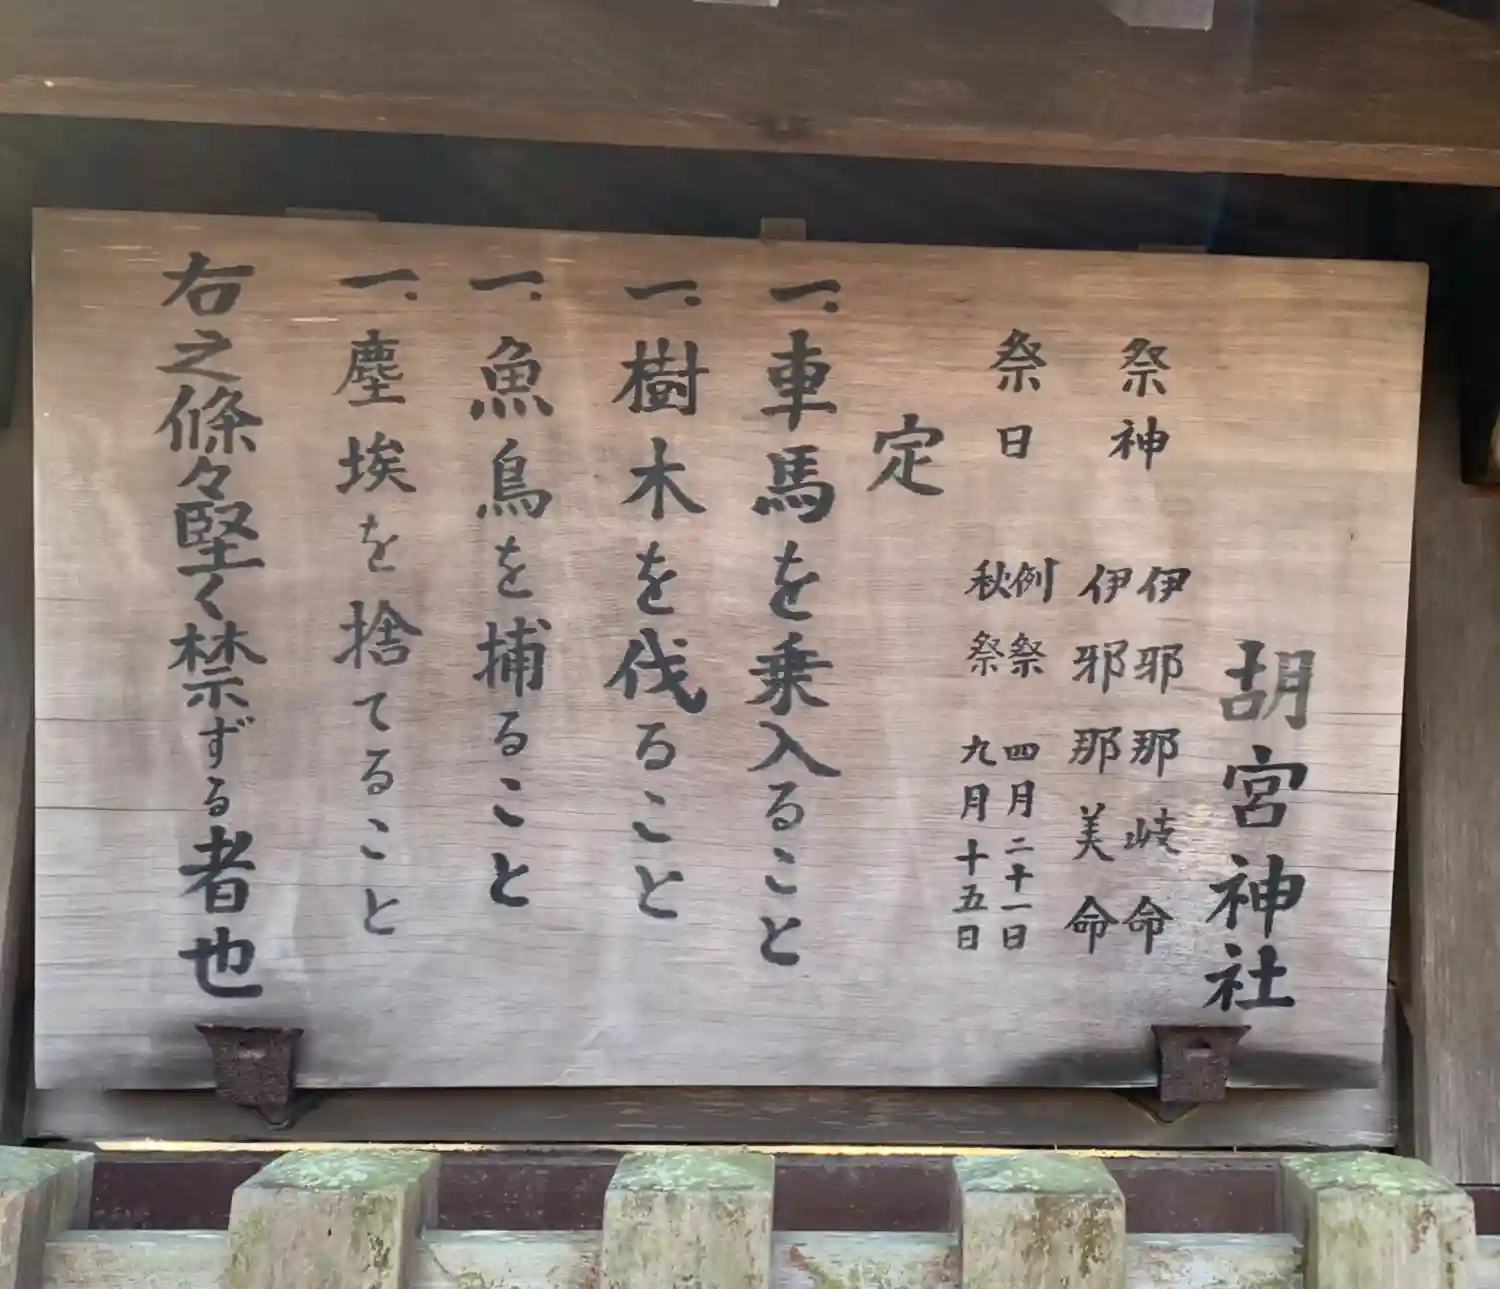 胡宮神社
祭神
伊邪那岐命
伊邪那美命
祭日
例祭 四月二十一日
秋祭 九月十五日
定
一、車馬を乗入ること
一、樹木を伐ること
一、魚鳥を捕ること
一、塵埃を捨てること
右之條々堅く禁ずる者也